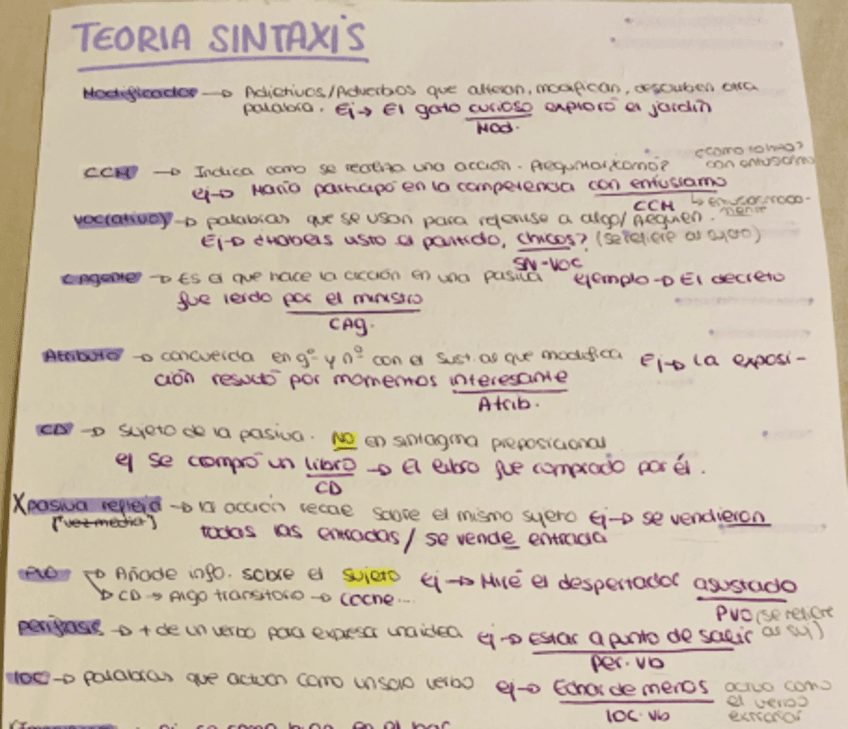 TEORIA SINTAXIS
Modificador → Adjetivos/Adverbios que alteran, modifican, describen otra
palabra. Ej → El gato curioso exploró el jardín
Mod.
¿como lo hizo?
CCM → Indica como se realiza una acción. Preguntar ¿como? con entusiasmo
ej → María participó en la competencia con entusiasmo
CCM
Voc(ativo) → palabras que se usan para referirse a algo/alguien.
Ej → ¿Habeis visto el partido, chicos? (se refiere al sujeto)
SN-VOC
C Agente → Es el que hace la acción en una pasiva ejemplo → El decreto
fue leído por el ministro
CAg.
Atributo → concuerda en gº y nº con el sust al que modifica Ej → La exposi-
ción resultó por momentos interesante
Atrib.
CD → Sujeto de la pasiva. NO en sintagma preposicional
ej Se compró un libro → El libro fue comprado por él.
CD
X pasiva refleja → la acción recae sobre el mismo sujeto Ej → se vendieron
("vez media")
todas las entradas / se vende entrada
PVO → Añade info. sobre el sujeto ej → Miré el despertador asustado
→ CD → Algo transitorio → coche...
PVO (se refiere
al suj)
perífrasis → + de un verbo para expresar una idea ej → Estar a punto de salir
per. vb
loc → palabras que actúan como un solo verbo ej → Echar de menos
loc. vb
actua como
el verbo
extrañar